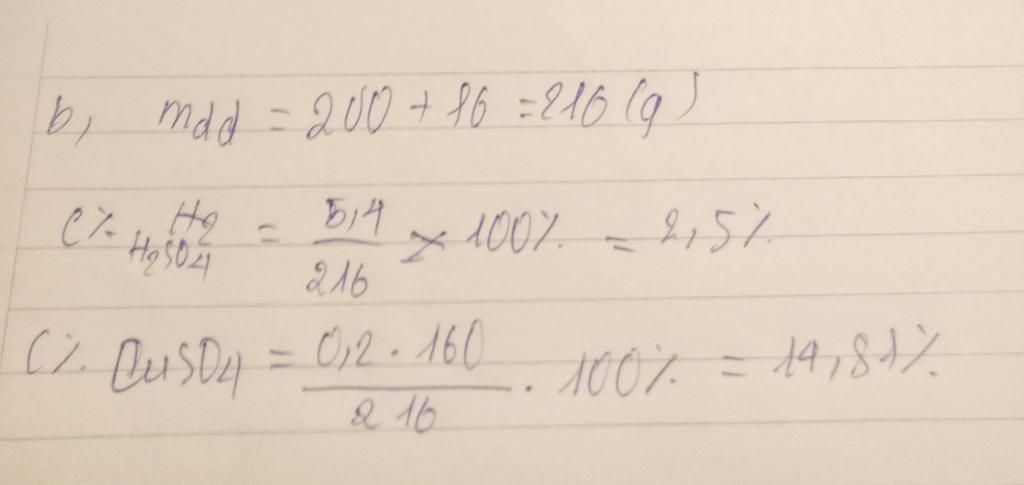 b, mdd = 200 + 16 = 216 (g)
C% H2 H2SO4 = 5,4/216 x 100% = 2,5%
C% CuSO4 = 0,2 . 160/216 . 100% = 14,81%